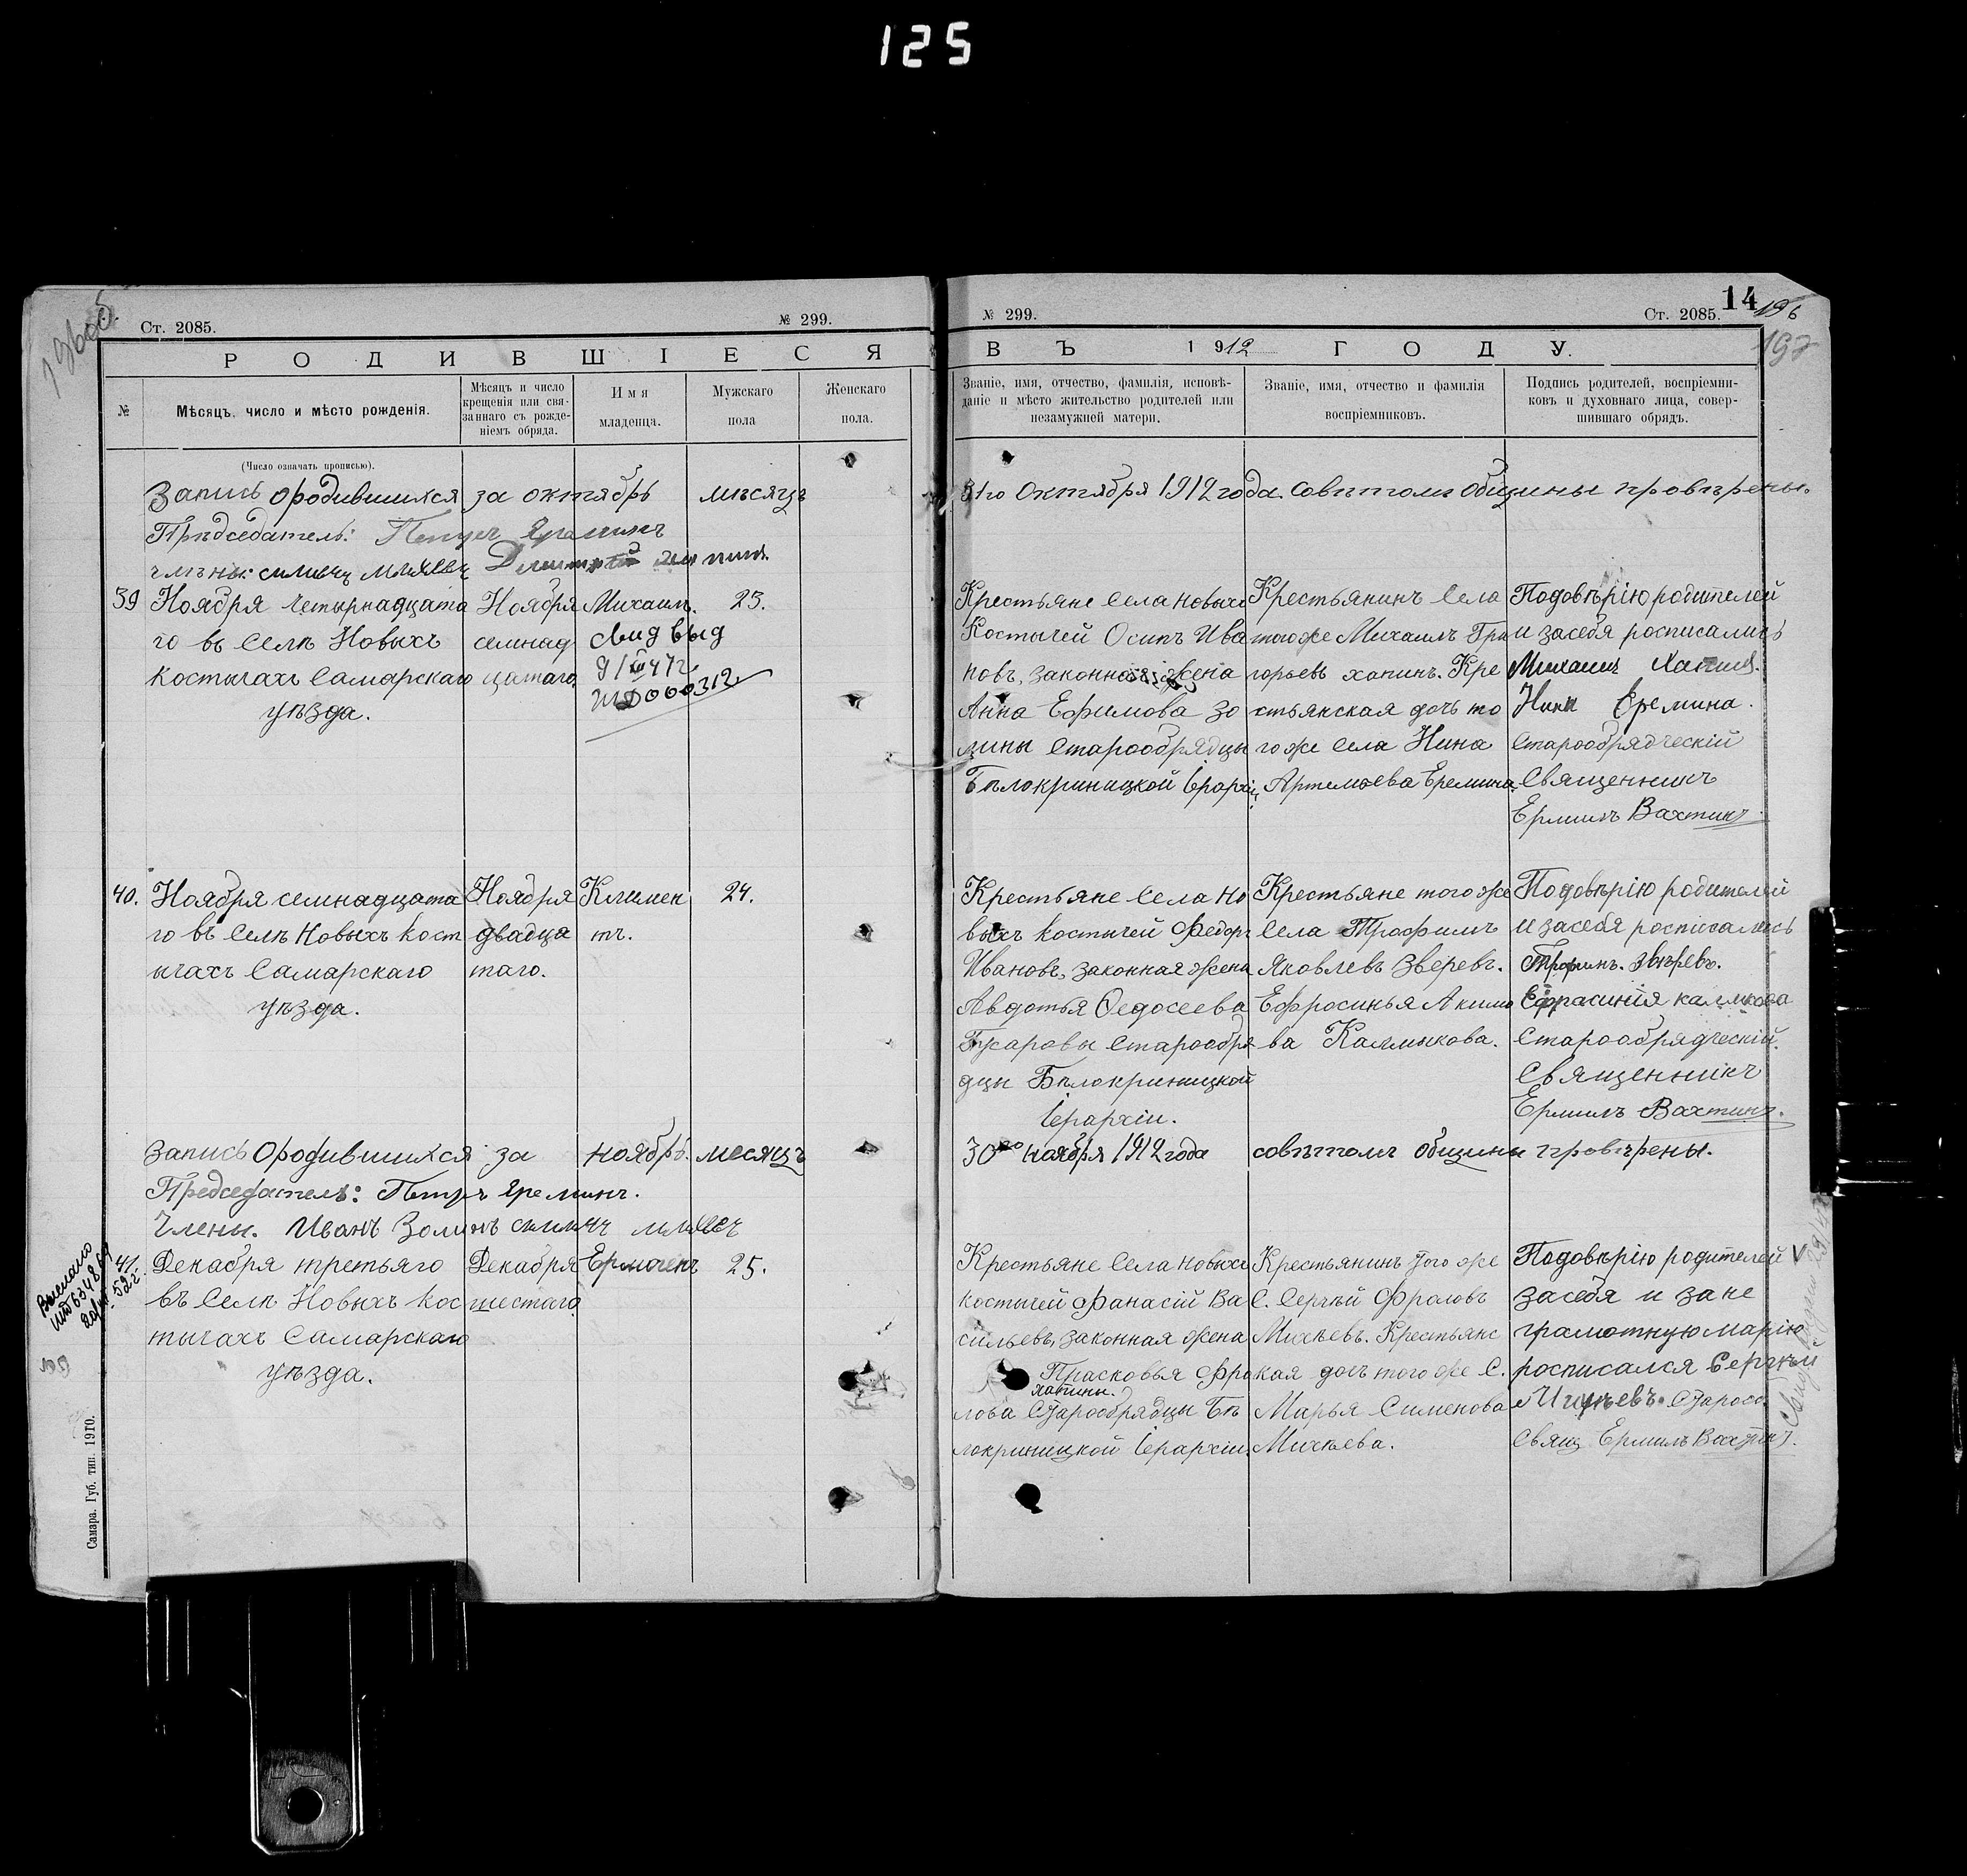 125
Ст. 2085.
№ 299.
РОДИВШІЕСЯ
№
Мѣсяцъ, число и мѣсто рожденія.
Мѣсяцъ и число
крещенія или свя-
заннаго съ рожде-
ніемъ обряда.
Имя
младенца.
Мужскаго
пола
Женскаго
пола.
(Число означать прописью).
Запись ородившихся за октябрь мѣсяцъ
Прѣдседатель: Петръ Яреминъ
члѣны: силинъ михѣевъ
39 Ноября четырнадцата
го въ селѣ Новыхъ
Костычахъ Самарскаго
уѣзда.
Ноября
семнад
цатаго.
Михаилъ.
23.
Свид выд
9/XII 47г.
ШД 000312.
40. Ноября семнадцата
го въ селѣ Новыхъ Кост
ычахъ Самарскаго
уѣзда.
Ноября
двадца
таго.
Климен
тъ.
24.
Запись Ородившихся за ноябрь месяцъ
Председатель: Петръ Яреминъ.
Члены. Иванъ Золинъ
41. Декабря третьяго
въ селѣ Новыхъ Кос
тычахъ Самарскаго
уѣзда.
Декабря
шестаго
25.
Выслано
52г.
Самара. Губ. тип. 1910.
№ 299.
Ст. 2085.
14
196
197
ВЪ 1912 ГОДУ.
Званіе, имя, отчество, фамилія, исповѣ-
даніе и мѣсто жительство родителей или
незамужней матери.
Званіе, имя, отчество и фамилія
воспріемниковъ.
Подпись родителей, воспріемни-
ковъ и духовнаго лица, совер-
шившаго обрядъ.
31го Октября 1912 года. совѣтомъ общины провѣрены.
Крестьяне Села Новыхъ
Костычей Осипъ Ива
новъ, законная жена
Анна Ефимова Зо
лины Старообрядцы
Бѣлокриницкой Іерархіи,
Крестьянинъ Села
тогоже Михаилъ Гри
горьевъ хапинъ. Кре
стьянская дочь то
го же села Нина
Артемьева Еремина.
Подовѣрію родителей
и засебя росписались
Михаилъ Хапинъ.
Нина Еремина.
Старообрядческій
Священникъ
Ермилъ Вахтинъ
Крестьяне Села Но
выхъ Костычей Федоръ
Ивановъ, законная жена
Авдотья Ѳедосеева
Гусаровы Старообря
дцы Бѣлокриницкой
Іерархіи.
Крестьяне того же
Села Трофимъ
Яковлевъ Зверевъ.
Ефросинья Акимо
ва Калмыкова.
Подовѣрію родителей
и засебя росписались
Трофимъ. Звѣревъ.
Ефрасинія калмыкова
Старообрядческій.
Священникъ
Ермилъ Вахтинъ.
30го ноября 1912 года совѣтомъ общины провѣрены.
Крестьяне Села Новыхъ
костычей Афанасій Ва
сильевъ, законная жена
Прасковья Фро
хапины.
лова Старообрядцы Бѣ
локриницкой Іерархіи.
Крестьянинъ того же
С. Сергѣй Фроловъ
Михѣевъ. Крестьянс
кая дочь того же С.
Марья Сименова
Михѣева.
Подовѣрію родителей
засебя и за не
грамотную марію
росписался Сергѣй
Михѣевъ. Старооб.
Свящ Ермилъ Вахтинъ.